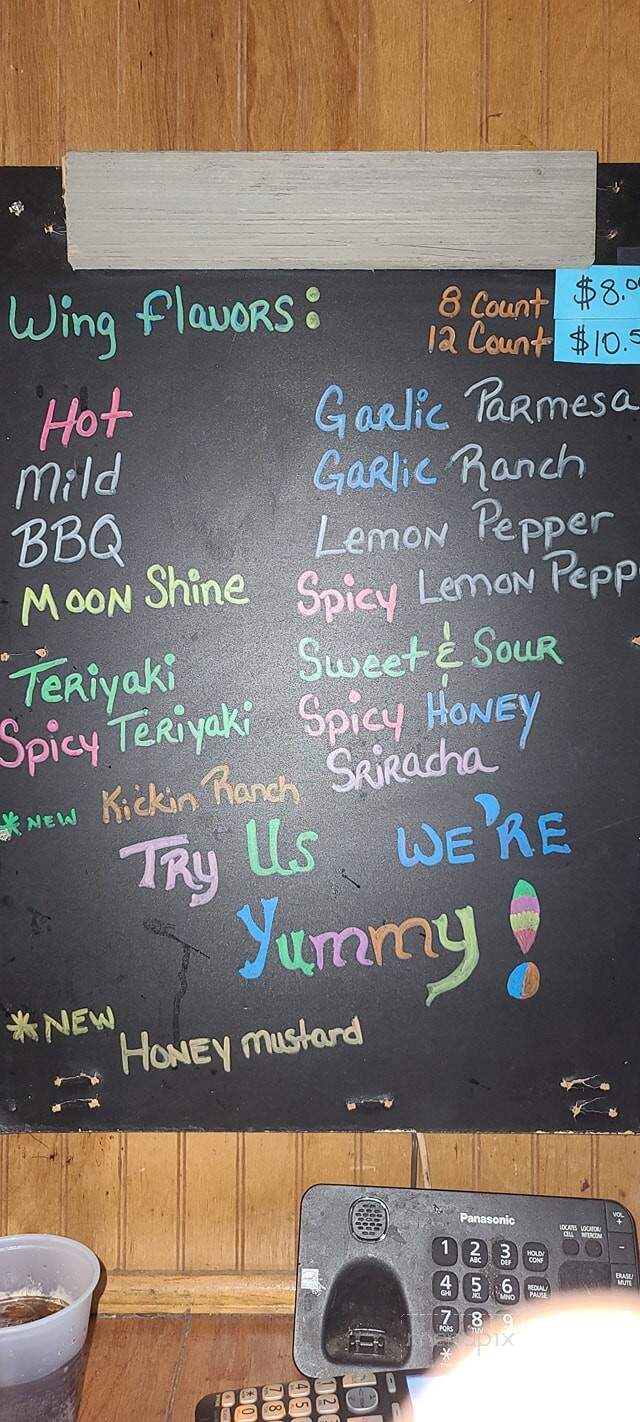 Wing Flavors:
8 Count $8.0
12 Count $10.5
Hot
Mild
BBQ
Moon Shine
Teriyaki
Spicy Teriyaki
*NEW Kickin Ranch
Garlic Parmesa
Garlic Ranch
Lemon Pepper
Spicy Lemon Pepp
Sweet & Sour
Spicy Honey
Sriracha
Try Us WE'RE
Yummy!
*NEW
Honey Mustard
Panasonic
LOCATES CELL
LOCATOR/INTERCOM
VOL +
-
1 2 ABC 3 DEF HOLD/CONF
ERASE/MUTE
4 GHI 5 JKL 6 MNO REDIAL/PAUSE
7 PQRS 8 TUV 9
*